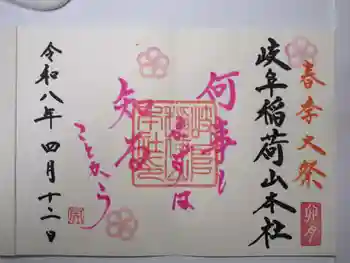 春季大祭
卯月
岐阜稲荷山本社
何事も
まずは
知る
ことから
令和八年四月十二日